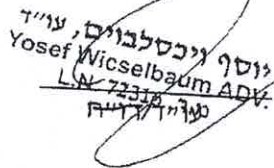 יוסף ויכסלבוים, עו״ד
Yosef Wicselbaum ADV.
L.N. 72318